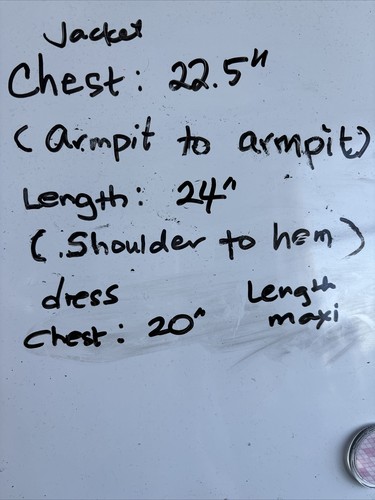 Jacket
Chest: 22.5"
(Armpit to armpit)
Length: 24"
(.Shoulder to hem)
dress Length
Chest: 20" maxi